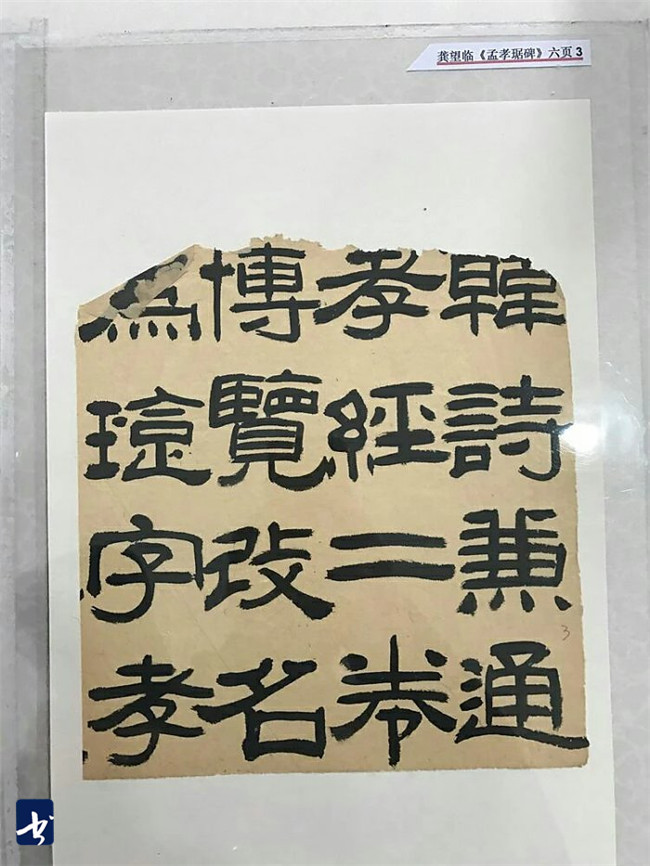 龚望临《孟孝琚碑》六页3
韓詩兼通
孝經二卷
博覽改名
為琁字孝
3